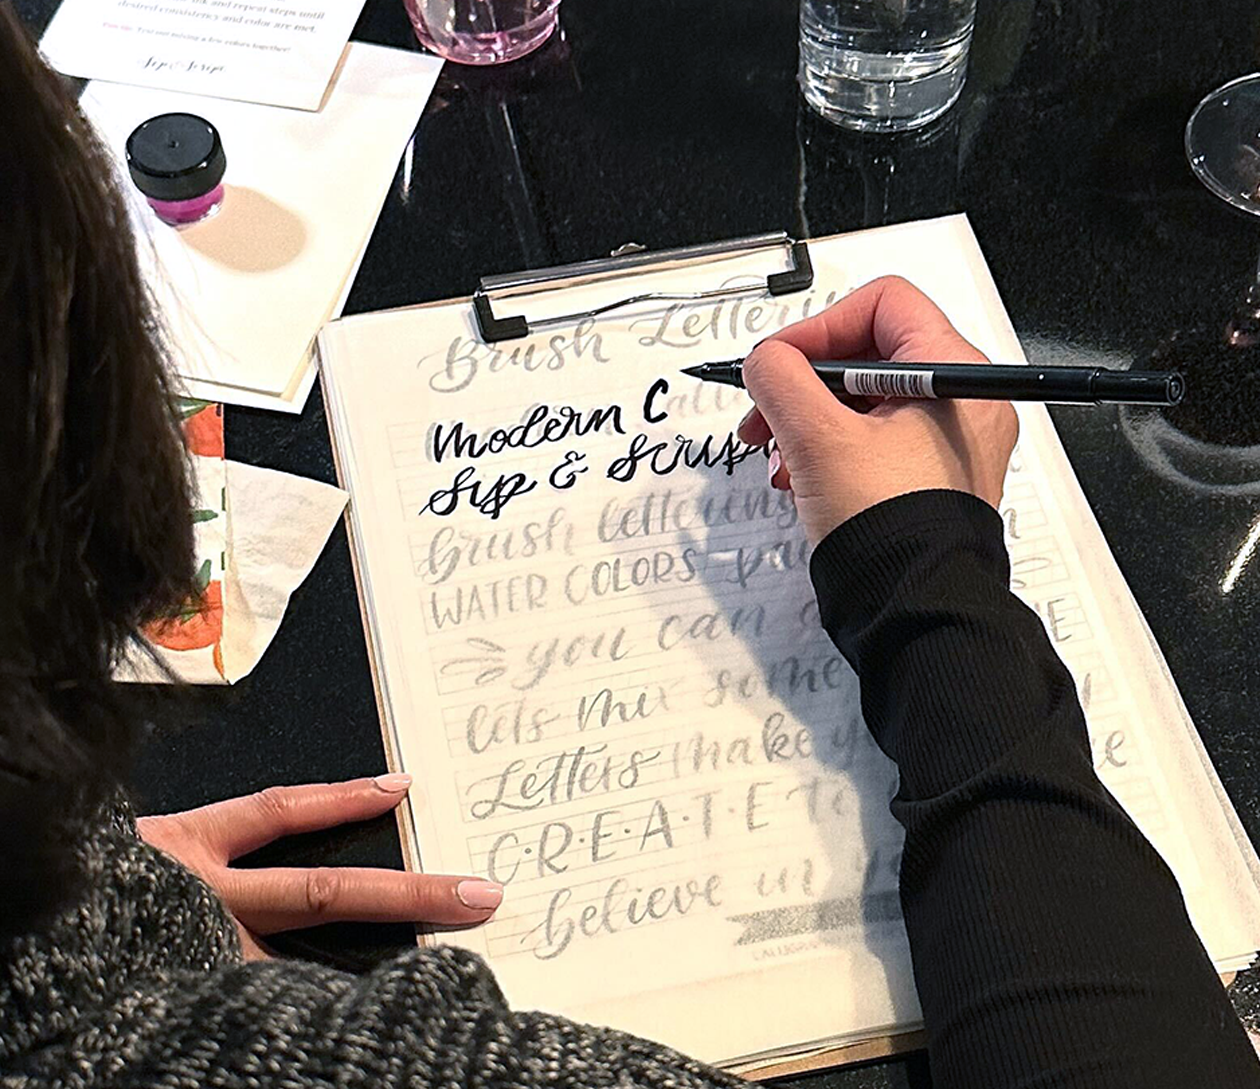 ink and repeat steps until
desired consistency and color are met.
Test out mixing a few colors together!
Sip & Script
Brush Lettering
modern C
Sip & Script
brush lettering
WATER COLORS
you can
lets mix some
Letters make
C·R·E·A·T·E to
believe in